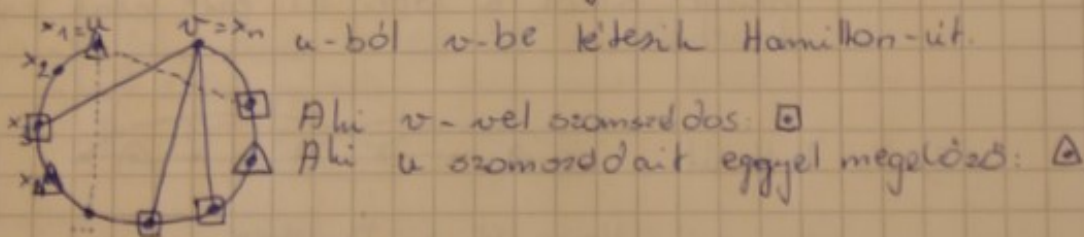 x₁=u v=xₙ u-ból v-be létezik Hamilton-út.
x₂
x₃ Aki v-vel szomszédos:
x₄ Aki u szomszédait eggyel megelőző:
...